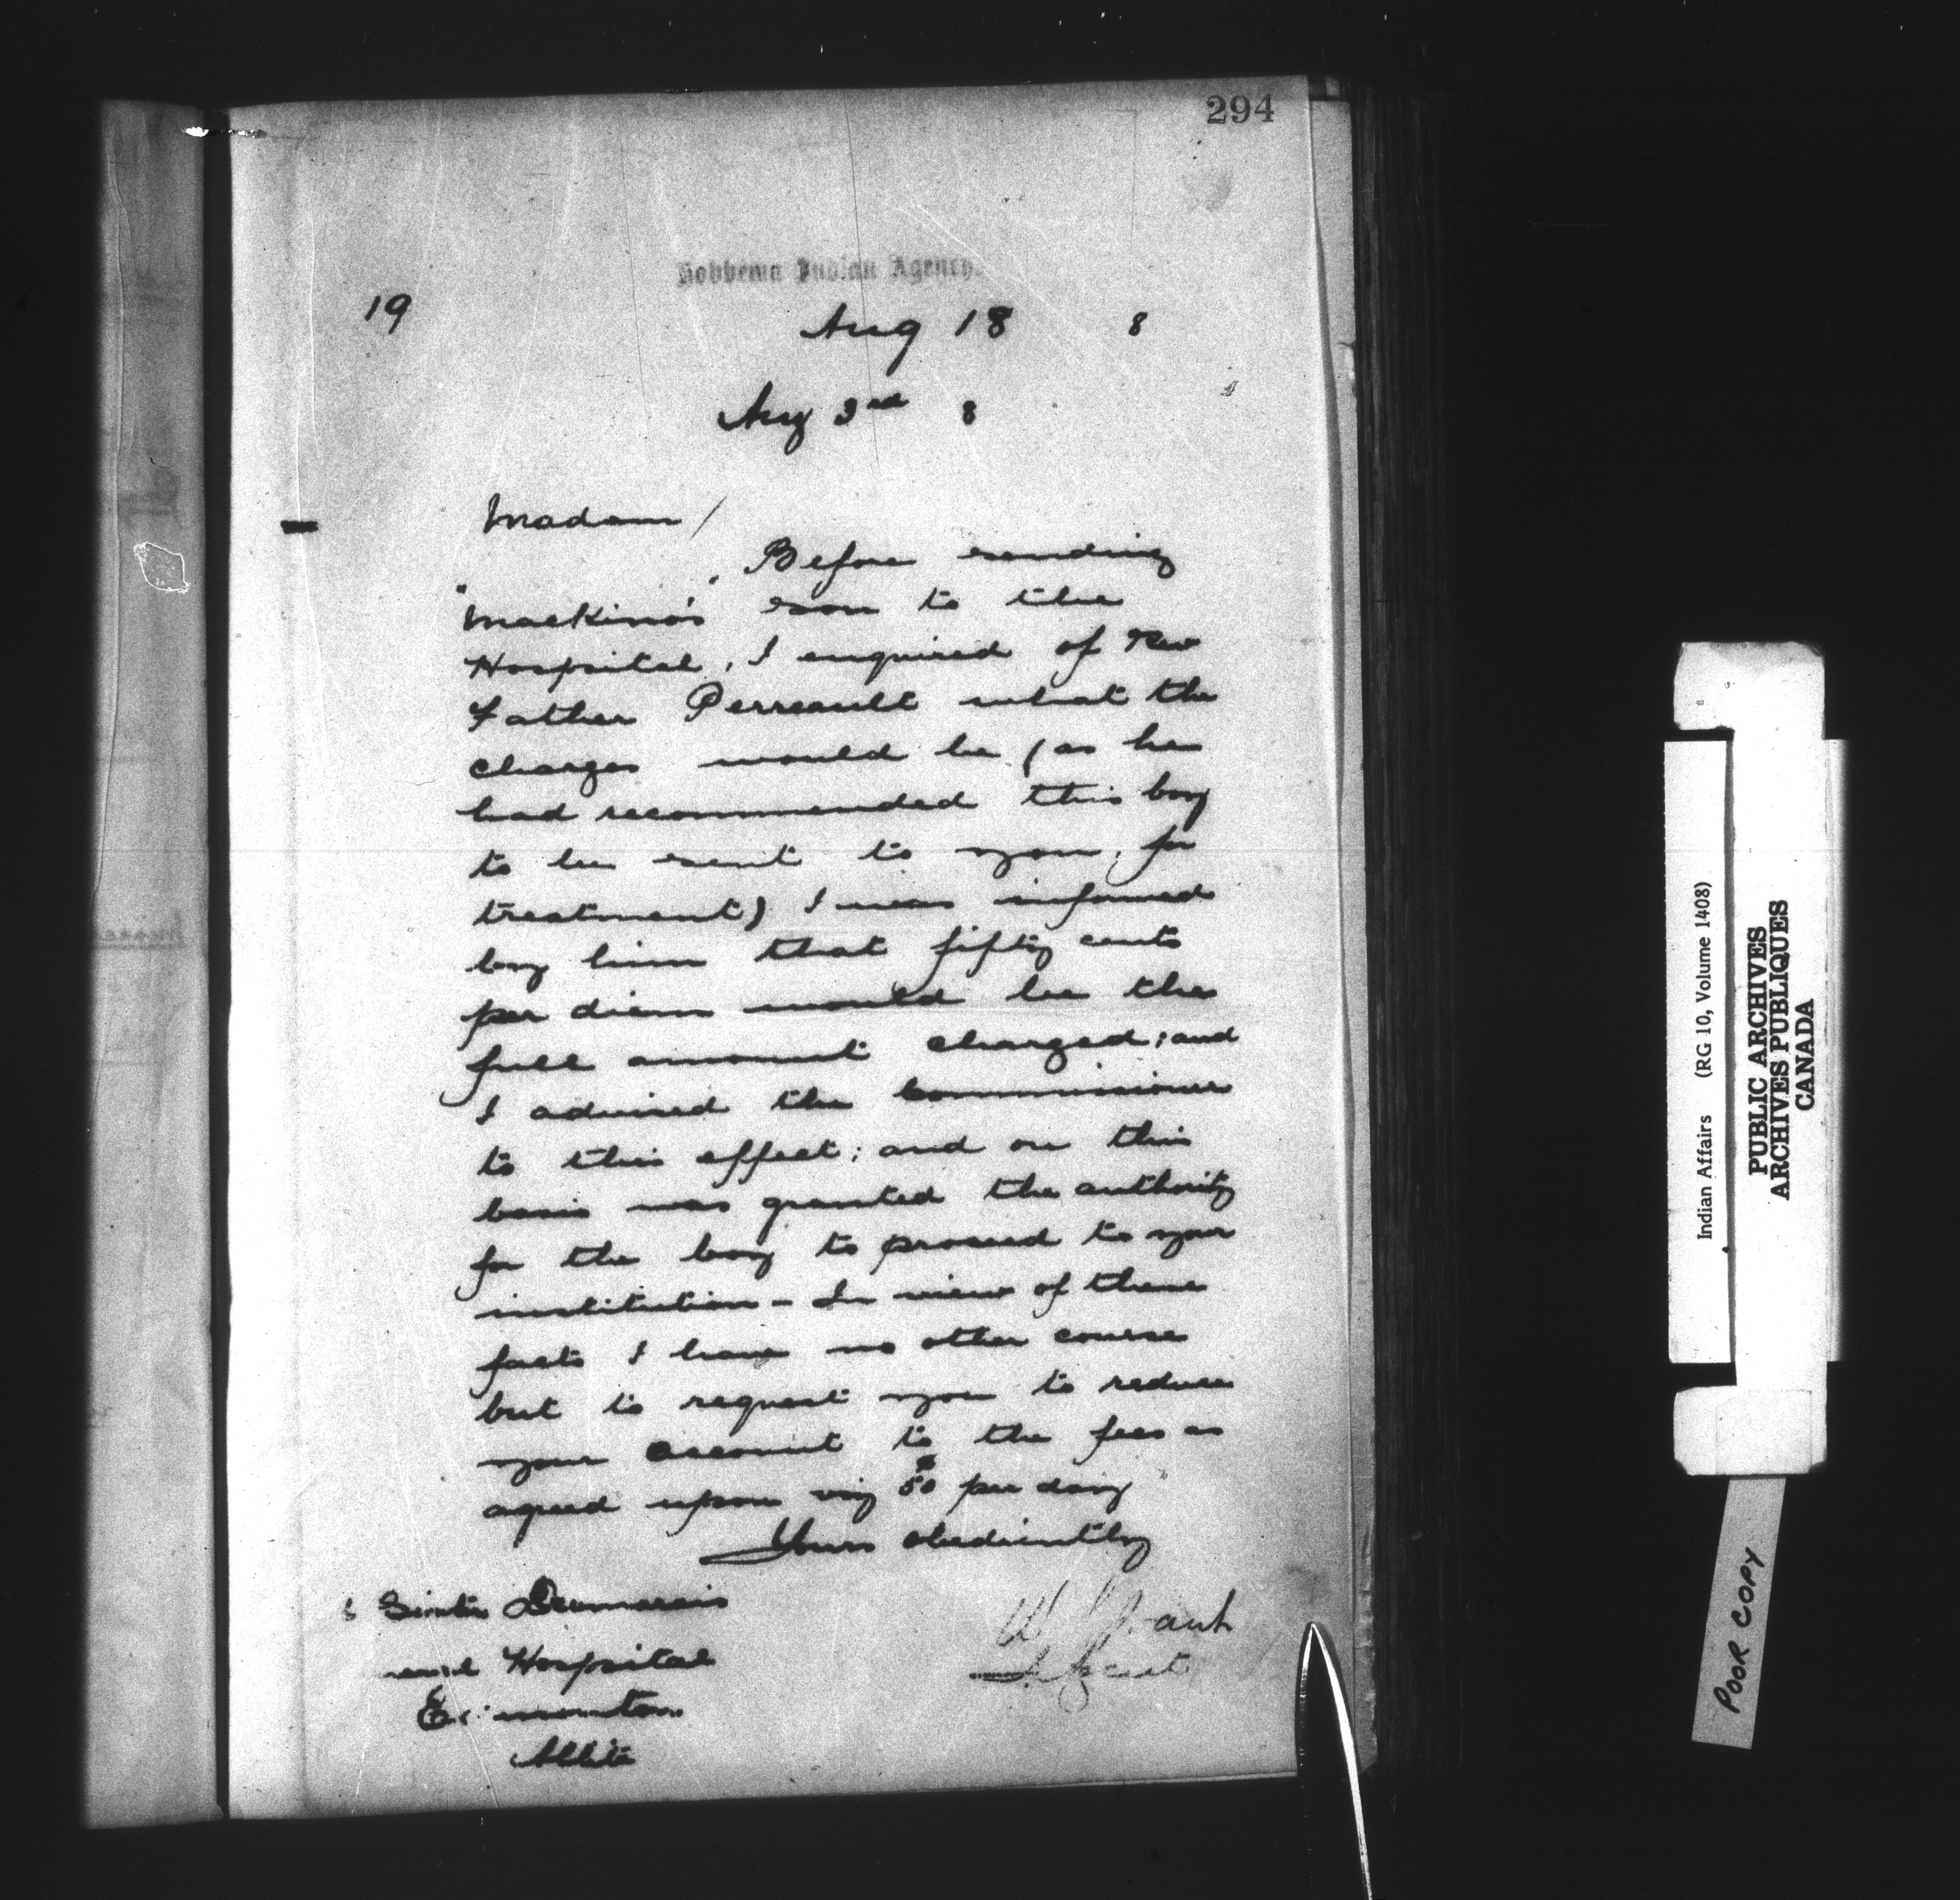 294
Hobbema Indian Agency.
19 Aug 18 8
Aug 3rd 8
Madam /
Before sending
"Mackino's" son to the
Hospital, I enquired of Rev
Father Perreault what the
charges would be (as he
had recommended this boy
to be sent to you, for
treatment) I was informed
by him that fifty cents
per diem would be the
full amount charged; and
I advised the Commissioner
to this effect; and on this
basis was granted the authority
for the boy to proceed to your
institution - In view of these
facts I have no other course
but to request you to reduce
your account to the fees as
agreed upon viz 50 per day
Yours obediently
Desmarais
Hospital
Alberta
W Grant
Agent
Indian Affairs (RG 10, Volume 1408)
PUBLIC ARCHIVES
ARCHIVES PUBLIQUES
CANADA
POOR COPY